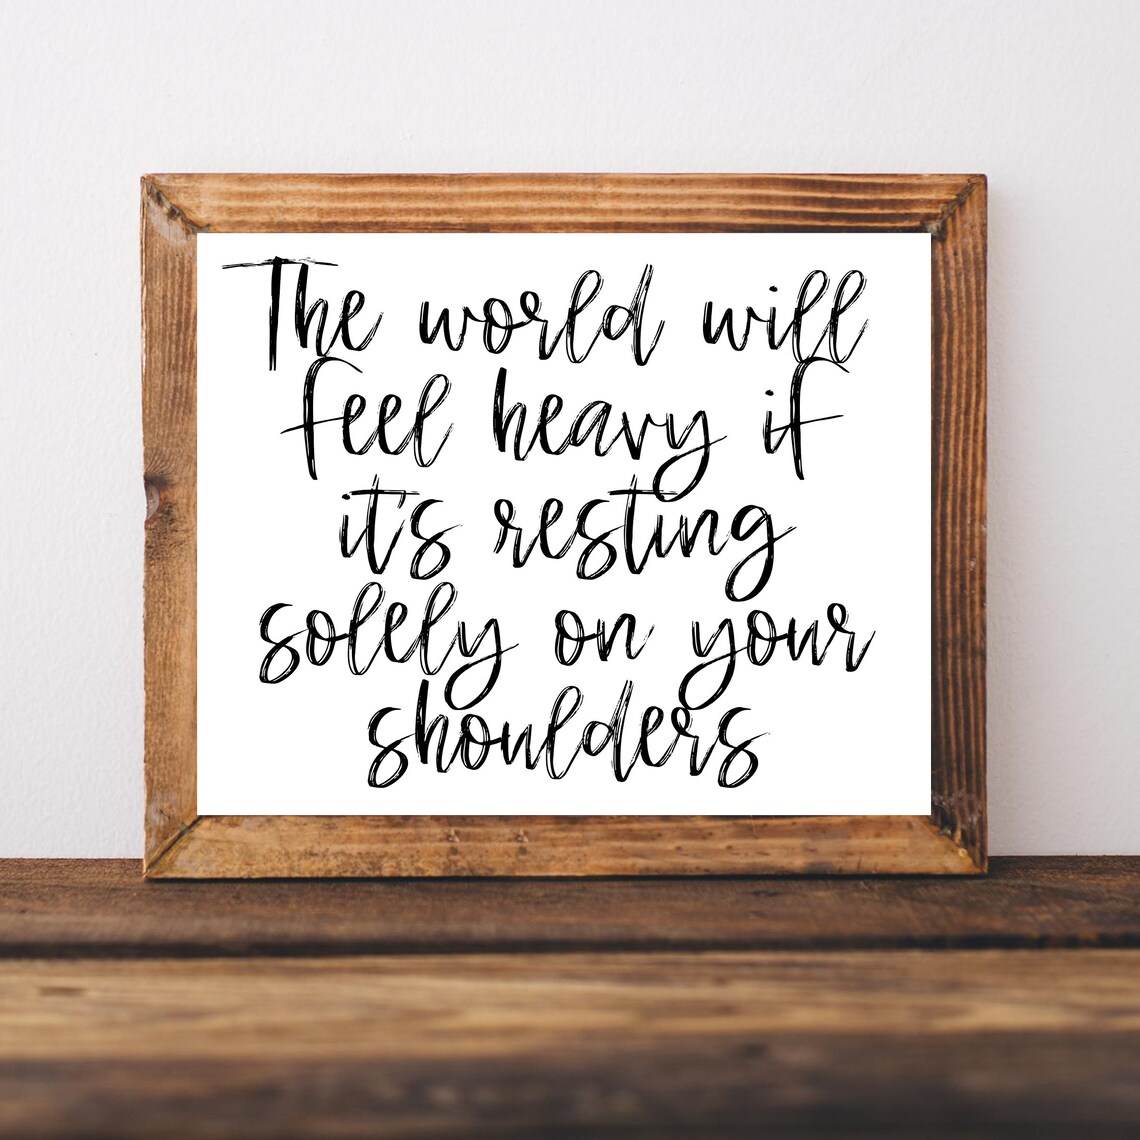 The world will
feel heavy if
it's resting
solely on your
shoulders